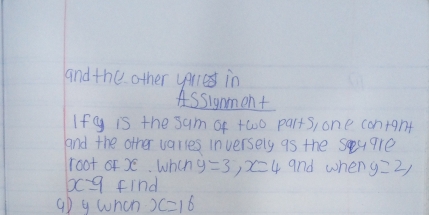 and the other varies in
Assignment
If y is the sum of two parts, one contant
and the other varies inversely as the square
root of x. when y=3, x=4 and when y=2,
x=9 find
a) y when x=16